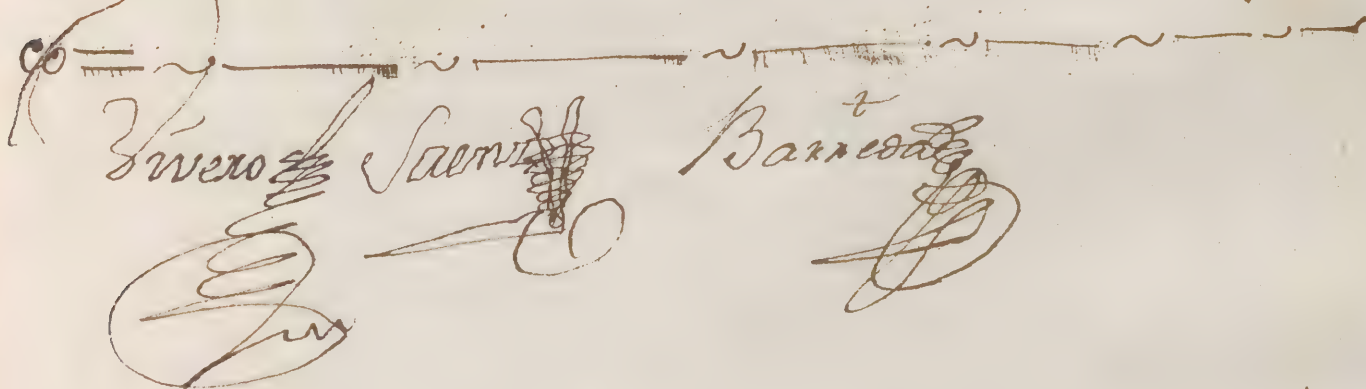 co =
Vivero Saenz Barreda